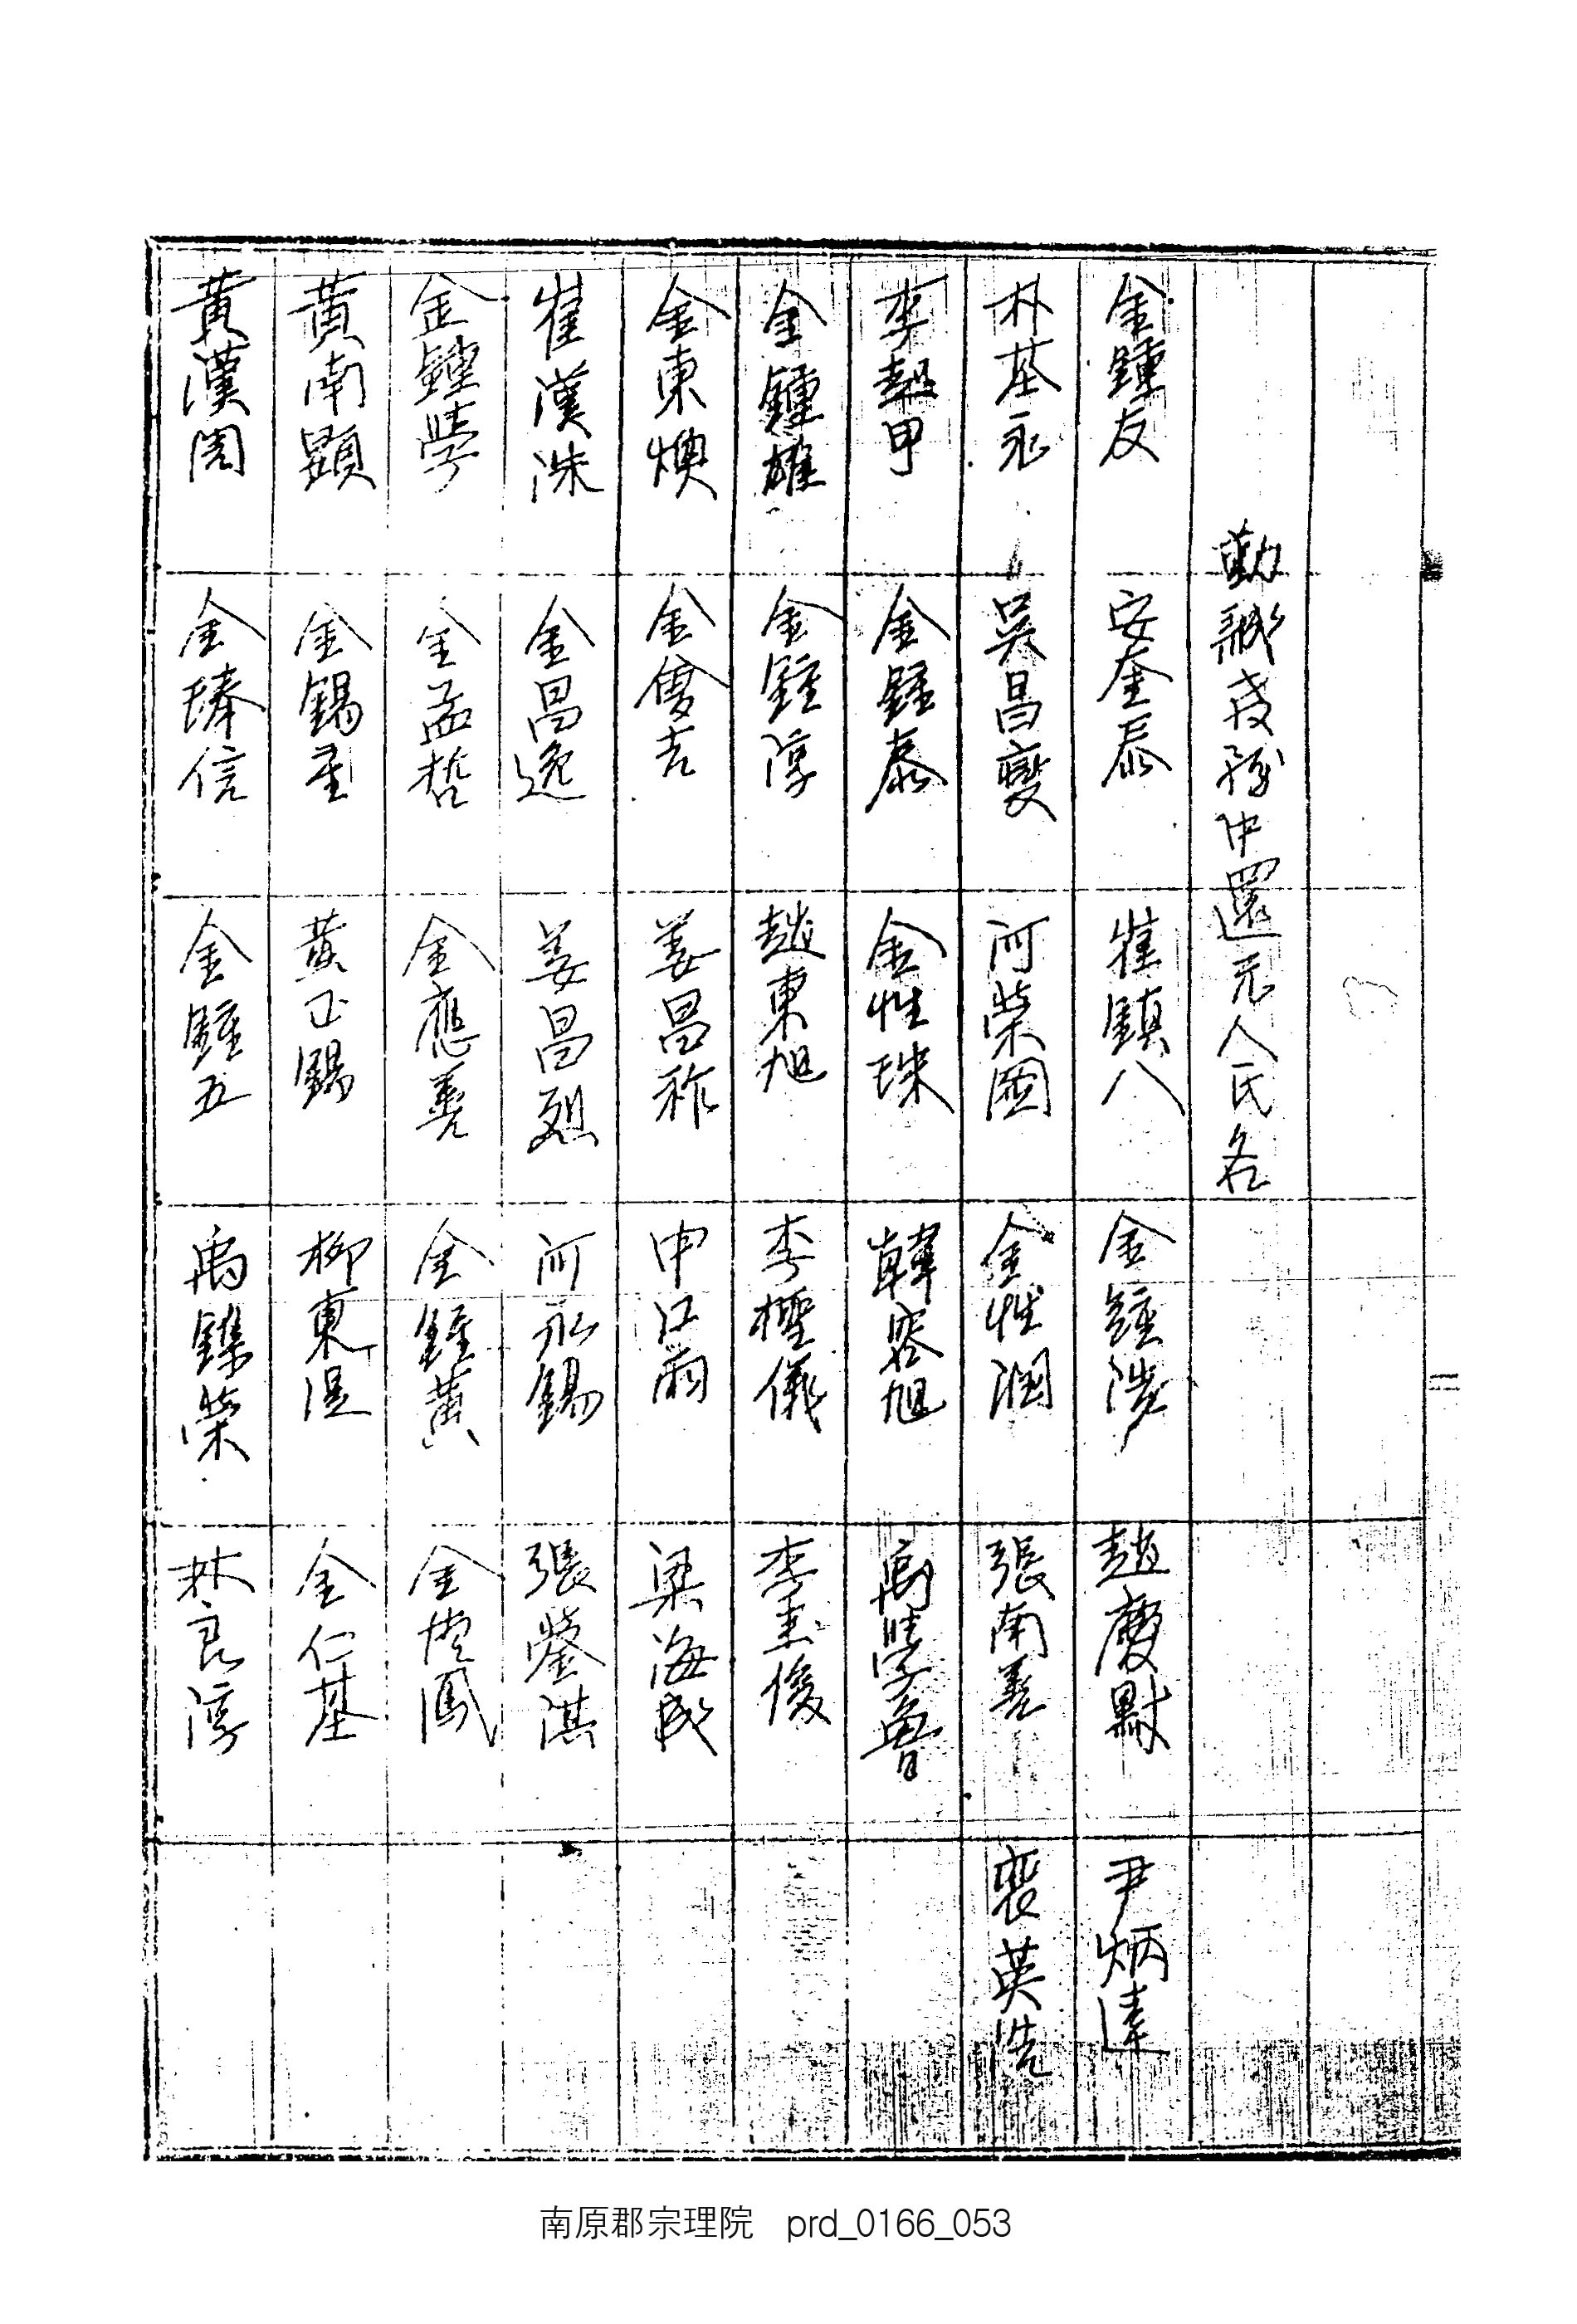 勤誠教務中還元人氏名
金鍾友 安奎泰 崔鎮八 金鍾涉 趙慶默 尹炳達
朴基永 吳昌燮 河榮國 金性潤 張南善 裵英浩
李起甲 金鍾泰 金性珠 韓容旭 禹學魯
金鍾雄 金鍾淳 趙東旭 李極儀 李圭俊
金東煥 金夋吉 姜昌祚 申江雨 梁海成
崔漢洙 金昌逸 姜昌烈 河永錫 張鎣淇
金鍾學 金孟哲 金應善 金鍾黃 金鳳
黃南顯 金錫重 黃正錫 柳東湜 金仁基
黃漢周 金瑧信 金鍾五 禹鏶榮 林良淳
南原郡宗理院 prd_0166_053